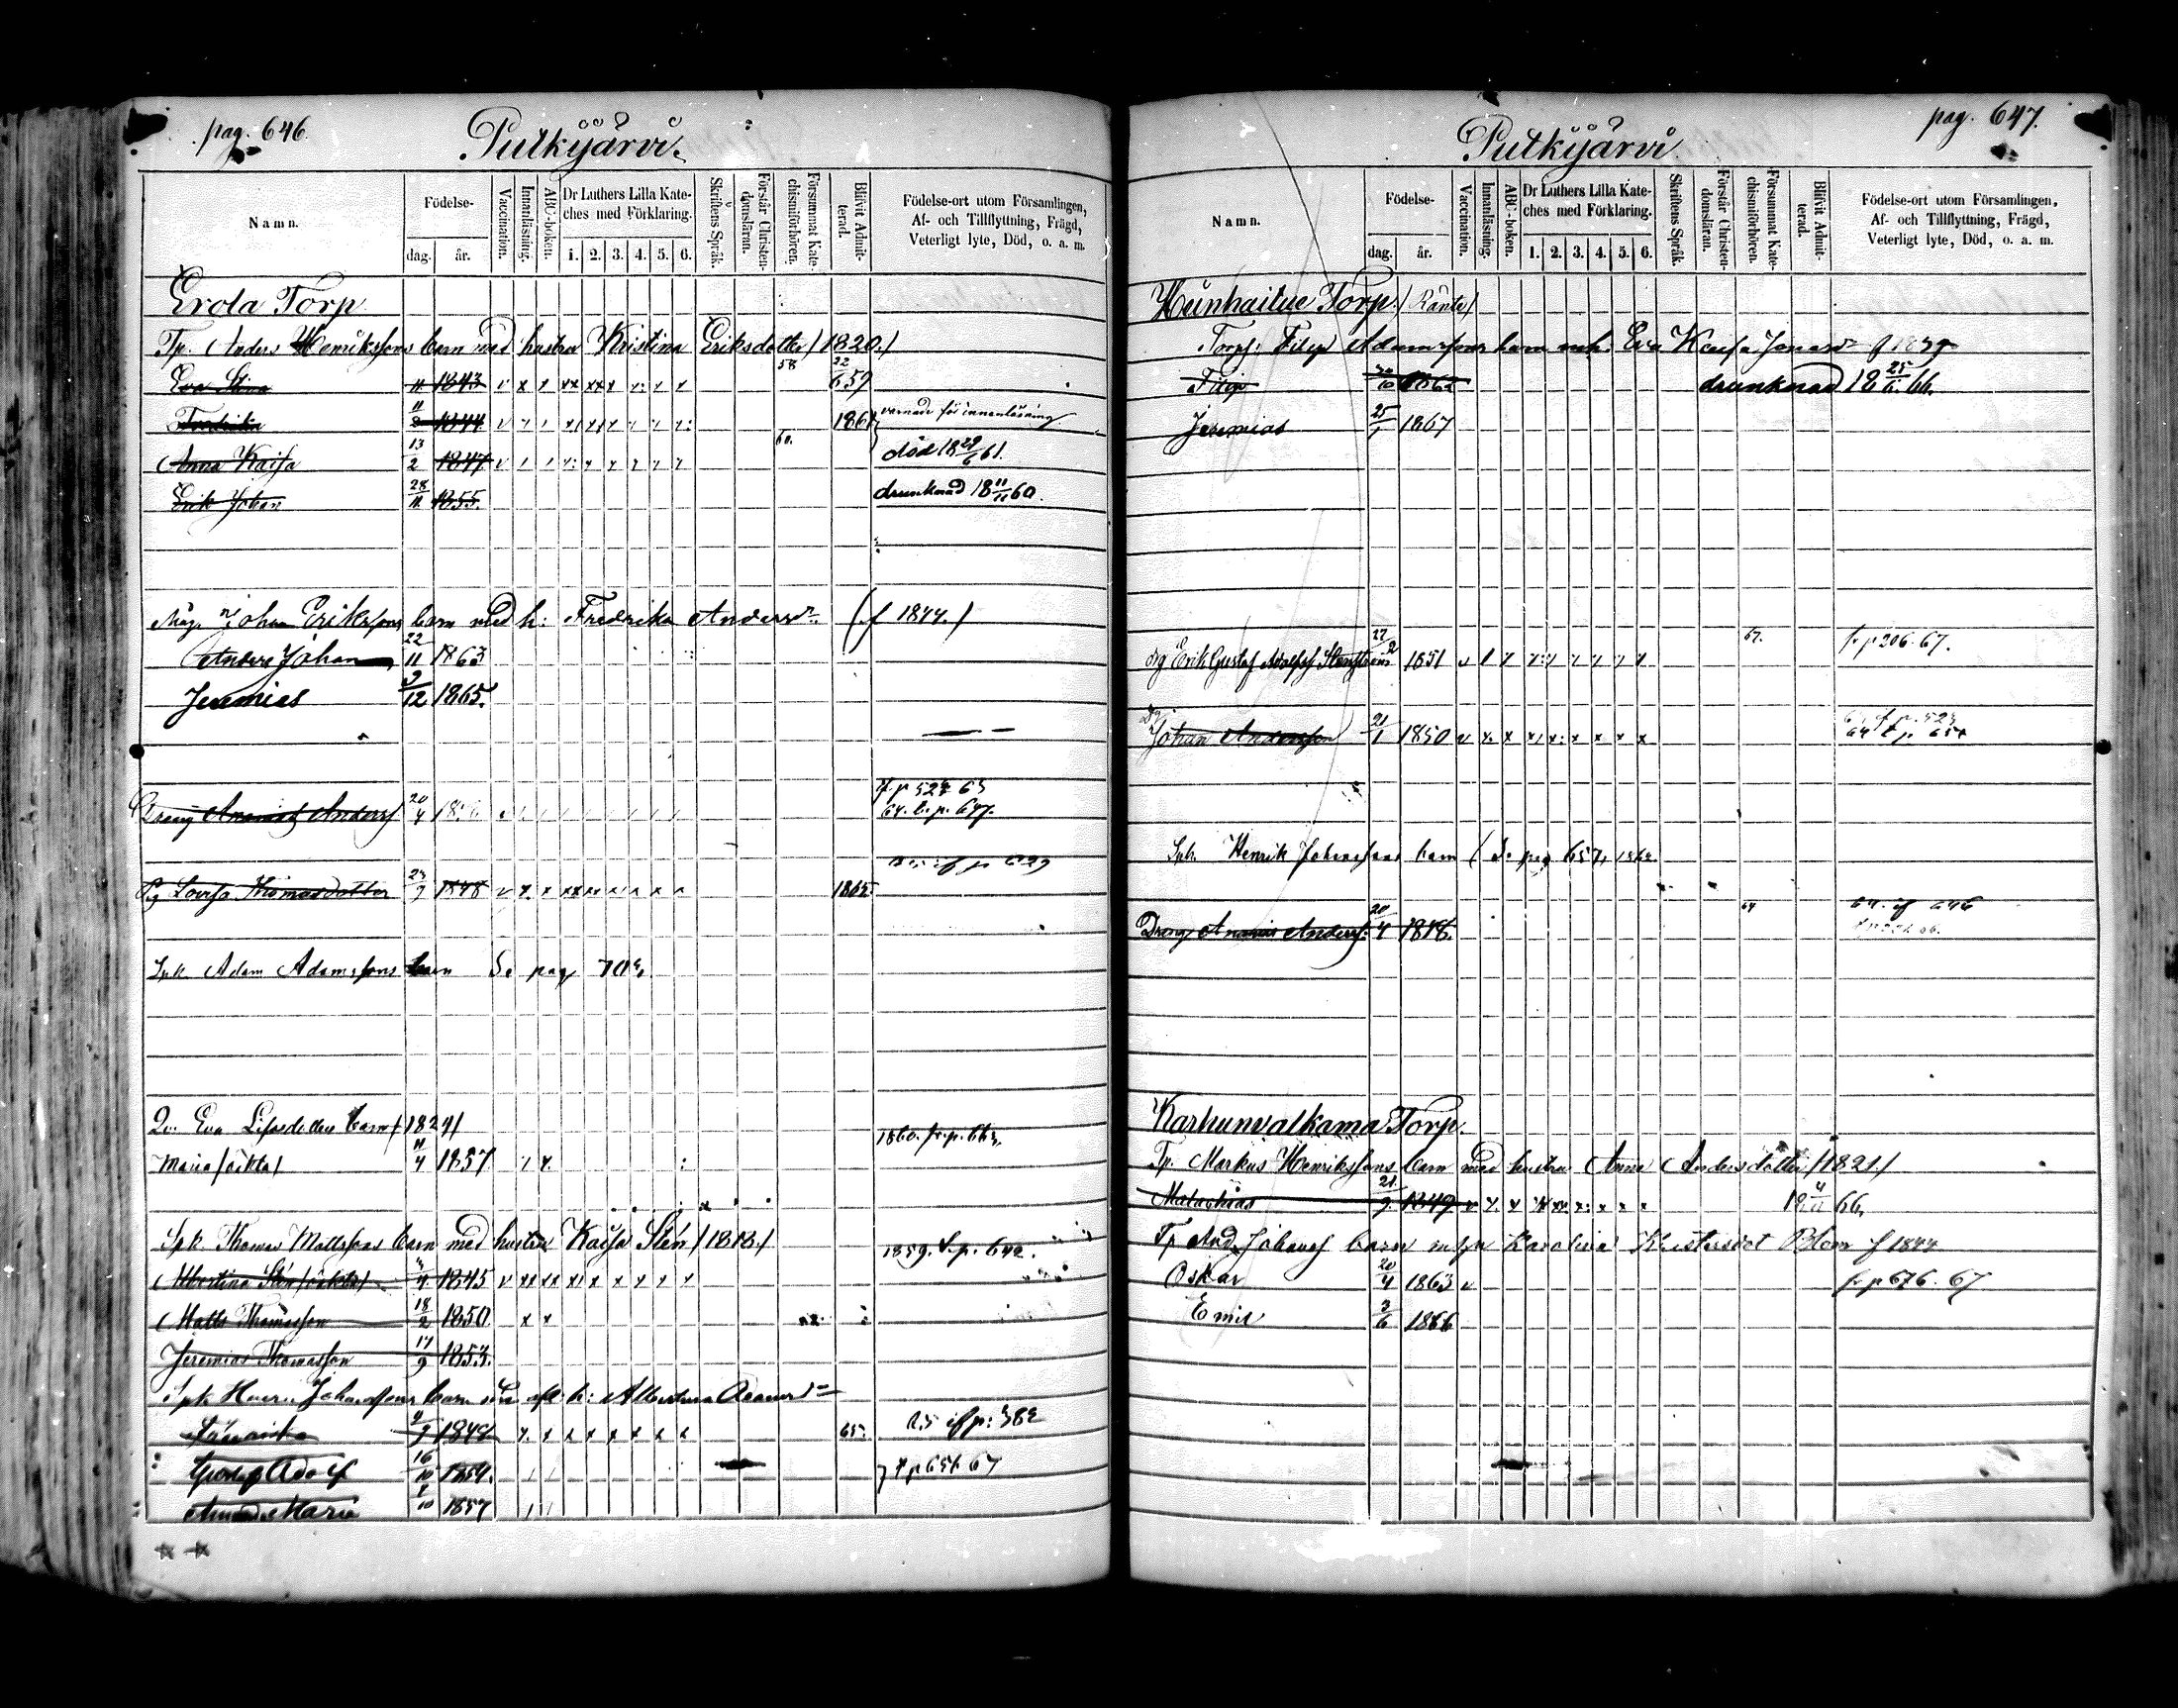 pag. 646.
Putkijärvi.
Namn.
Födelse-
dag.
år.
Vaccination.
Innanläsning.
ABC-boken.
Dr Luthers Lilla Kate-
ches med Förklaring.
1. 2. 3. 4. 5. 6.
Skriftens Språk.
Förstår Christen-
domsläran.
Försummat Kate-
chismiförhören.
Blifvit Admit-
terad.
Födelse-ort utom Församlingen,
Af- och Tillflyttning, Frägd,
Veterligt lyte, Död, o. a. m.
Erola Torp
Tp. Anders Henrikssons barn med hustru Kristina Eriksdotter /1820./
Eva Stina 11 1843 58 22/6 59
Fredrika 11/8 1844 1861 varnade för innanläsning
Anna Kaisa 13/2 1847 60. död 18 29/6 61.
Erik Johan 28/11 1855. drunknad 18 11/11 60.
Måg Johan Erikssons barn med h: Fredrika Andersdr (f 1844.)
Anders Johan 22/11 1863
Jeremias 9/12 1865.
Dreng Ananias Anderss 20/4 f p 527 63
64. t. p. 647.
Pig Lovisa Thomasdotter 23/9 1848 1865.
Spk Adam Adamssons barn Se pag 702
Qv. Eva Lisasdotters barn /1824/
Maria /oäkta/ 11/4 1857 1860. fr. p. 663.
Spk. Thomas Mattssons barn med hustru Kaisa Sten /1818./
Albertina Sten /oäkta/ 4 1845 1859. f. p. 642.
Matts Thomasson 18/2 1850
Jeremias Thomasson 17/9 1853.
Spk Johanssons barn h: Albertina
Fredrika 9 1848 65. 65 if p: 382
Gustaf Adolf 16/10 1854. f p 651 67
Amanda Maria 1/10 1857
pag. 647.
Putkijärvi
Namn.
Födelse-
dag.
år.
Vaccination.
Innanläsning.
ABC-boken.
Dr Luthers Lilla Kate-
ches med Förklaring.
1. 2. 3. 4. 5. 6.
Skriftens Språk.
Förstår Christen-
domsläran.
Försummat Kate-
chismiförhören.
Blifvit Admit-
terad.
Födelse-ort utom Församlingen,
Af- och Tillflyttning, Frägd,
Veterligt lyte, Död, o. a. m.
Heinhaitue Torp. /Ranta/
Torp: Filip Adamssons barn m h: Eva Kaisa Jonasdr f 1839
Filip 10 1862 drunknad 18 25/6 66.
Jeremias 25/1 1867
dg Erik Gustaf Adolfss Stenström 27/2 1851 67. fr p 206. 67.
Dg Johan Andersson 21/1 1850
Spk. Henrik Johanssons barn (Se pag 657, 1862.
Dreng Ananias Anderss. 20/4 1848. 64 64. if 646
Karhunvalkama Torp.
Tp. Markus Henrikssons barn med hustru Anna Andersdotter /1821/
Malachias 21/9 1849 66.
Tp And Johanss barn m hu Karolina Kristersdot Blom f 1844
Oskar 20/4 1863 fr p 676. 67
Emil 3/6 1866